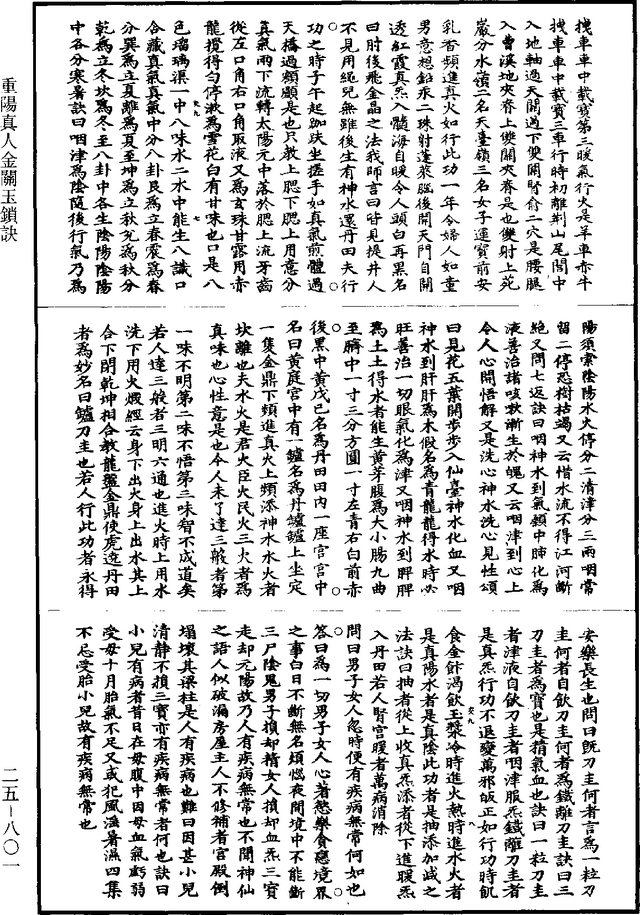 拽車車中載寶第三暖氣行火是羊車亦牛
拽車車中載寶三車行時初離荆山尾閭中
入地軸過天關過下雙關腎俞二穴是腰腿
入曹溪地夾脊上雙關夾脊是也雙射上苑
巖分水嶺二名天臺嶺三名女子運寶前安
乳香頻進真火如行此功一年令婦人如童
男意想鉛汞二珠射蓬萊腦後開天門自開
透紅霞真炁入髓海自暖令人頭白再黑名
曰肘後飛金晶之法我師言曰皆見提井人
不見用繩兒無雖後生有神水還丹田夫行
功之時子午起跏趺坐搓手如真氣煎體過
天橋過頞顖是也只教上腮下腮上用意分
真氣兩下流轉太陽元中落於腮上流牙齒
從左口角右口角取液又為玄珠甘露用赤
龍攪得勻停漱為雪花白有甘味也只是八
色瑠璃渠一中八味水二水中能生八識口
合藏真氣真氣中分八卦艮為立春震為春
分巽為立夏離為夏至坤為立秋兌為秋分
乾為立冬坎為冬至八卦中各生陰陽陰陽
中各分寒暑訣曰咽津為陰隨後行氣乃為
陽須索陰陽水火停分二清津分三兩咽常
留二停忍樹枯竭又云惜水流不得江河斷
絕又問七返訣曰咽神水到氣顙中肺化為
液善治諸咳漸生於魄又云咽津到心上
令人心開悟解又是洗心神水洗心見性頌
曰見花五葉開步步入仙臺神水化血又咽
神水到肝肝為木假名為青龍龍得水時必
旺善治一切眼氣化為津又咽神水到脾脾
為土土得水者能生黃芽腹為大小腸九曲
至臍中一寸三分方圓一寸左青右白前赤
後黑中黃戊己名為丹田田內一座宮宮中
名曰黃庭宮中有一鑪名為丹鑪鑪上坐定
一隻金鼎下頻進真火上頻添神水水火者
坎離也夫水火是君火臣火民火三火者為
真味也心性意是也今人未了達三般者第
一味不明第二味不悟第三味智不成道矣
若人達三般者三明六通也進火時上用水
洗下用火煆經云身下出火身上出水其上
合下閉乾坤相合教龍盤金鼎使虎遶丹田
者為妙名曰鑪刀圭也若人行此功者永得
安樂長生也問曰既刀圭何者言為一粒刀
圭何者自飲刀圭何者為鐵離刀圭訣曰三
刀圭者為寶也是精氣血也訣曰一粒刀圭
者津液自飲刀圭者咽津服炁鐵離刀圭者
是真炁行功不退變萬邪皈正如行功時飢
食金餅渴飲玉漿冷時進火熱時進水火者
是真陽水者是真陰此功者是抽添加減之
法訣曰抽者從上收真炁添者從下進暖炁
入丹田若人腎宮暖者萬病消除
問曰男子女人忽時便有疾病無常何如也
答曰為一切男子女人心著慾樂貪戀境界
之事白日不斷無名煩惱夜間境中不能斷
三尸陰鬼男子損却精女人損却血炁三寶
走却元陽故乃人有疾病無常也不聞神仙
之語人似破漏房屋主人不修補者宮殿倒
塌壞其梁柱是人有疾病也難曰因甚小兒
清靜不損三寶亦有疾病無常者何也訣曰
小兒有病者昔日在母腹中因母血氣虧弱
受母十月胎氣不足又或犯風濕暑濕四集
不忌受胎小兒故有疾病無常也
重陽真人金關玉鎖訣
二五－八〇一